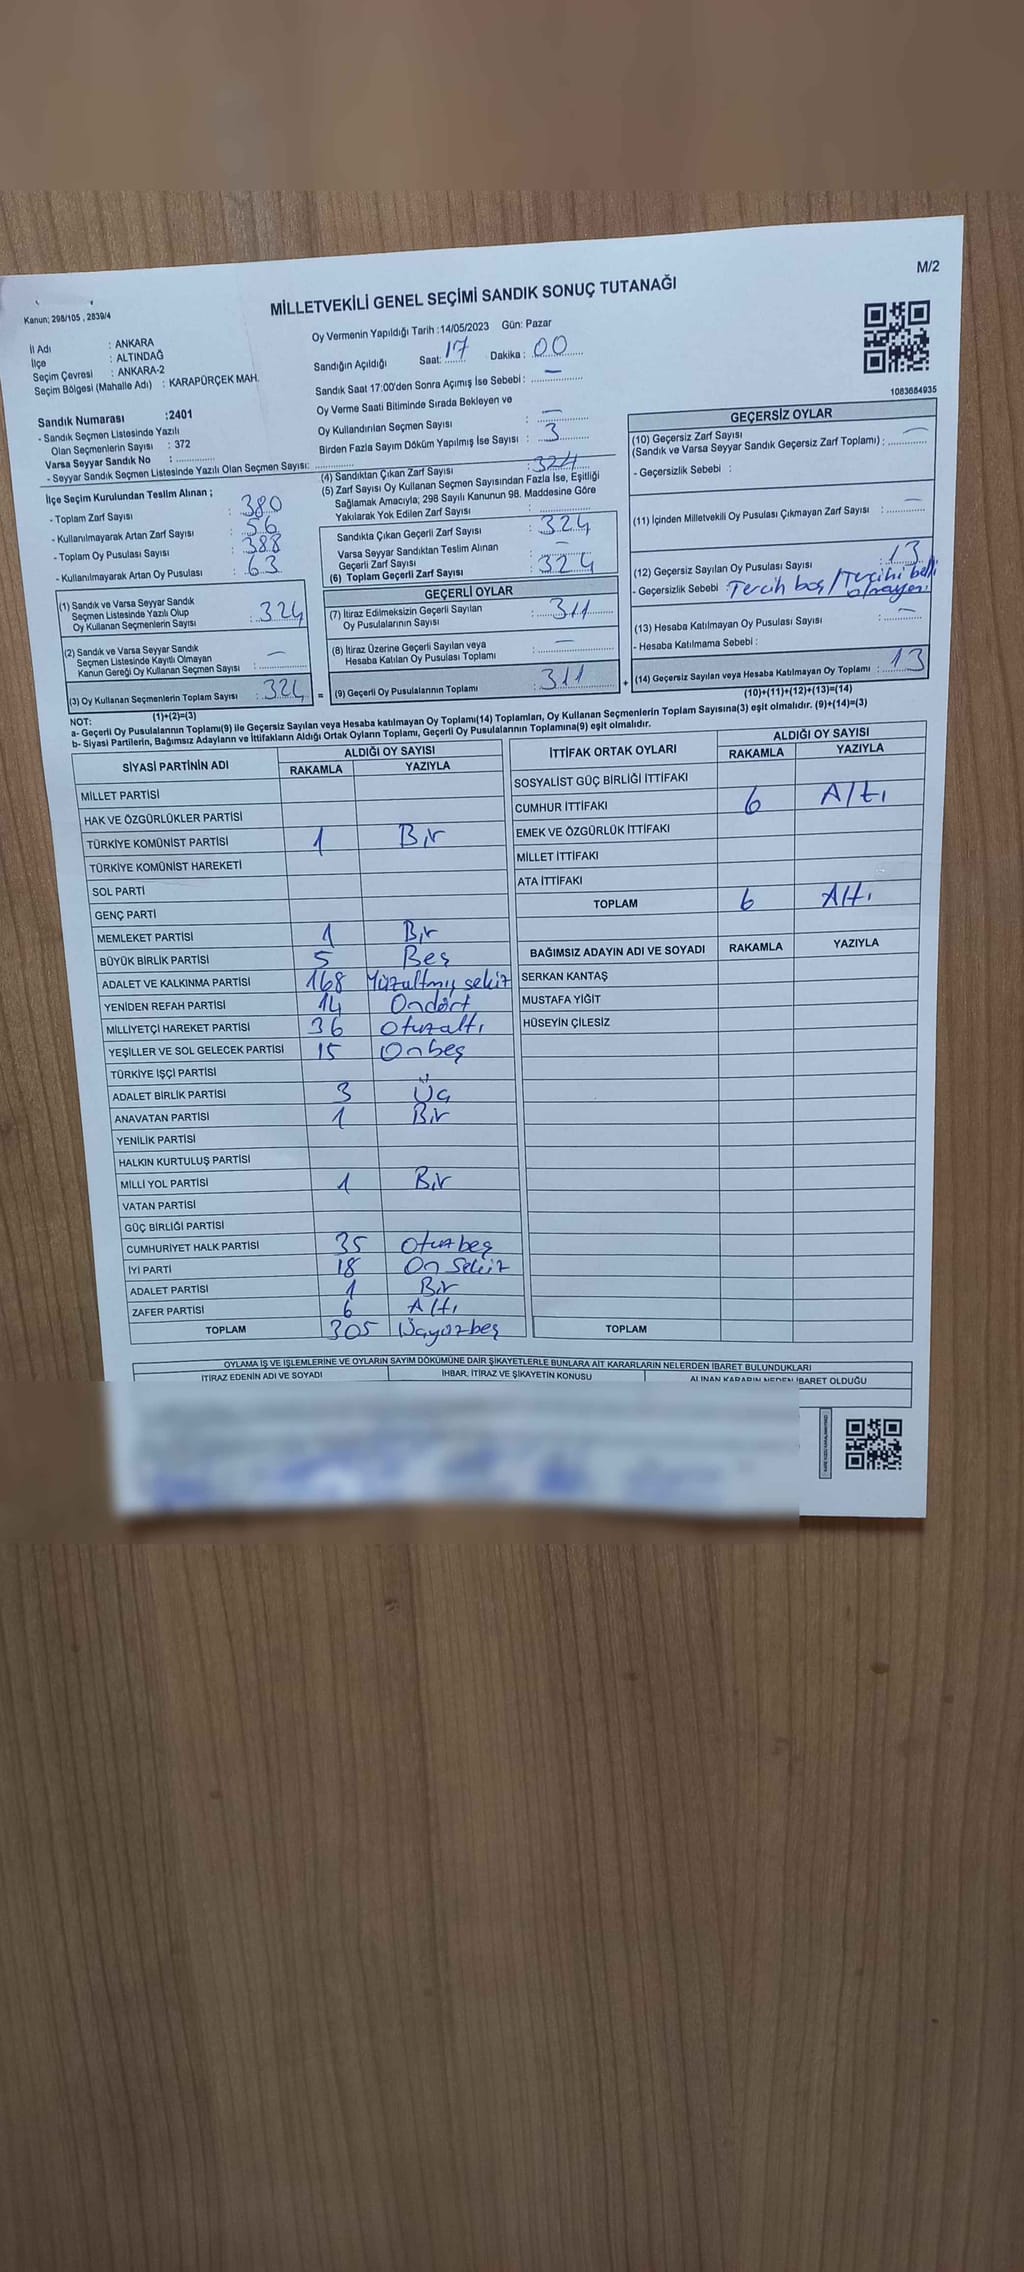 M/2
MİLLETVEKİLİ GENEL SEÇİMİ SANDIK SONUÇ TUTANAĞI
Kanun; 298/105 , 2839/4
İl Adı : ANKARA
İlçe : ALTINDAĞ
Seçim Çevresi : ANKARA-2
Seçim Bölgesi (Mahalle Adı) : KARAPÜRÇEK MAH.
Oy Vermenin Yapıldığı Tarih :14/05/2023 Gün: Pazar
Sandığın Açıldığı Saat: 17 Dakika : 00
Sandık Saat 17:00'den Sonra Açımış İse Sebebi : –
Oy Verme Saati Bitiminde Sırada Bekleyen ve
Oy Kullandırılan Seçmen Sayısı : –
Birden Fazla Sayım Döküm Yapılmış İse Sayısı : 3
1083684935
Sandık Numarası :2401
- Sandık Seçmen Listesinde Yazılı
Olan Seçmenlerin Sayısı : 372
Varsa Seyyar Sandık No :
- Seyyar Sandık Seçmen Listesinde Yazılı Olan Seçmen Sayısı:
İlçe Seçim Kurulundan Teslim Alınan ;
- Toplam Zarf Sayısı : 380
- Kullanılmayarak Artan Zarf Sayısı : 56
- Toplam Oy Pusulası Sayısı : 388
- Kullanılmayarak Artan Oy Pusulası : 63
(1) Sandık ve Varsa Seyyar Sandık
Seçmen Listesinde Yazılı Olup
Oy Kullanan Seçmenlerin Sayısı : 324
(2) Sandık ve Varsa Seyyar Sandık
Seçmen Listesinde Kayıtlı Olmayan
Kanun Gereği Oy Kullanan Seçmen Sayısı : –
(3) Oy Kullanan Seçmenlerin Toplam Sayısı : 324 =
(1)+(2)=(3)
(4) Sandıktan Çıkan Zarf Sayısı : 324
(5) Zarf Sayısı Oy Kullanan Seçmen Sayısından Fazla İse, Eşitliği
Sağlamak Amacıyla; 298 Sayılı Kanunun 98. Maddesine Göre
Yakılarak Yok Edilen Zarf Sayısı :
Sandıkta Çıkan Geçerli Zarf Sayısı : 324
Varsa Seyyar Sandıktan Teslim Alınan
Geçerli Zarf Sayısı : –
(6) Toplam Geçerli Zarf Sayısı : 324
GEÇERLİ OYLAR
(7) İtiraz Edilmeksizin Geçerli Sayılan
Oy Pusulalarının Sayısı : 311
(8) İtiraz Üzerine Geçerli Sayılan veya
Hesaba Katılan Oy Pusulası Toplamı : –
(9) Geçerli Oy Pusulalarının Toplamı : 311 +
GEÇERSİZ OYLAR
(10) Geçersiz Zarf Sayısı
(Sandık ve Varsa Seyyar Sandık Geçersiz Zarf Toplamı) : –
- Geçersizlik Sebebi :
(11) İçinden Milletvekili Oy Pusulası Çıkmayan Zarf Sayısı : –
(12) Geçersiz Sayılan Oy Pusulası Sayısı : 13
- Geçersizlik Sebebi : Tercih boş / Tercihi belli
olmayan
(13) Hesaba Katılmayan Oy Pusulası Sayısı : –
- Hesaba Katılmama Sebebi :
(14) Geçersiz Sayılan veya Hesaba Katılmayan Oy Toplamı : 13
(10)+(11)+(12)+(13)=(14)
NOT:
a- Geçerli Oy Pusulalarının Toplamı(9) ile Geçersiz Sayılan veya Hesaba katılmayan Oy Toplamı(14) Toplamları, Oy Kullanan Seçmenlerin Toplam Sayısına(3) eşit olmalıdır. (9)+(14)=(3)
b- Siyasi Partilerin, Bağımsız Adayların ve İttifakların Aldığı Ortak Oyların Toplamı, Geçerli Oy Pusulalarının Toplamına(9) eşit olmalıdır.
SİYASİ PARTİNİN ADI ALDIĞI OY SAYISI
RAKAMLA YAZIYLA
MİLLET PARTİSİ
HAK VE ÖZGÜRLÜKLER PARTİSİ
TÜRKİYE KOMÜNİST PARTİSİ 1 Bir
TÜRKİYE KOMÜNİST HAREKETİ
SOL PARTİ
GENÇ PARTİ
MEMLEKET PARTİSİ 1 Bir
BÜYÜK BİRLİK PARTİSİ 5 Beş
ADALET VE KALKINMA PARTİSİ 168 Yüzaltmış sekiz
YENİDEN REFAH PARTİSİ 14 Ondört
MİLLİYETÇİ HAREKET PARTİSİ 36 Otuzaltı
YEŞİLLER VE SOL GELECEK PARTİSİ 15 Onbeş
TÜRKİYE İŞÇİ PARTİSİ
ADALET BİRLİK PARTİSİ 3 Üç
ANAVATAN PARTİSİ 1 Bir
YENİLİK PARTİSİ
HALKIN KURTULUŞ PARTİSİ
MİLLİ YOL PARTİSİ 1 Bir
VATAN PARTİSİ
GÜÇ BİRLİĞİ PARTİSİ
CUMHURİYET HALK PARTİSİ 35 Otuzbeş
İYİ PARTİ 18 On Sekiz
ADALET PARTİSİ 1 Bir
ZAFER PARTİSİ 6 Altı
TOPLAM 305 Üçyüzbeş
İTTİFAK ORTAK OYLARI ALDIĞI OY SAYISI
RAKAMLA YAZIYLA
SOSYALİST GÜÇ BİRLİĞİ İTTİFAKI
CUMHUR İTTİFAKI 6 Altı
EMEK VE ÖZGÜRLÜK İTTİFAKI
MİLLET İTTİFAKI
ATA İTTİFAKI
TOPLAM 6 Altı
BAĞIMSIZ ADAYIN ADI VE SOYADI RAKAMLA YAZIYLA
SERKAN KANTAŞ
MUSTAFA YİĞİT
HÜSEYİN ÇİLESİZ
TOPLAM
OYLAMA İŞ VE İŞLEMLERİNE VE OYLARIN SAYIM DÖKÜMÜNE DAİR ŞİKAYETLERLE BUNLARA AİT KARARLARIN NELERDEN İBARET BULUNDUKLARI
İTİRAZ EDENİN ADI VE SOYADI İHBAR, İTİRAZ VE ŞİKAYETİN KONUSU ALINAN KARARIN NEDEN İBARET OLDUĞU